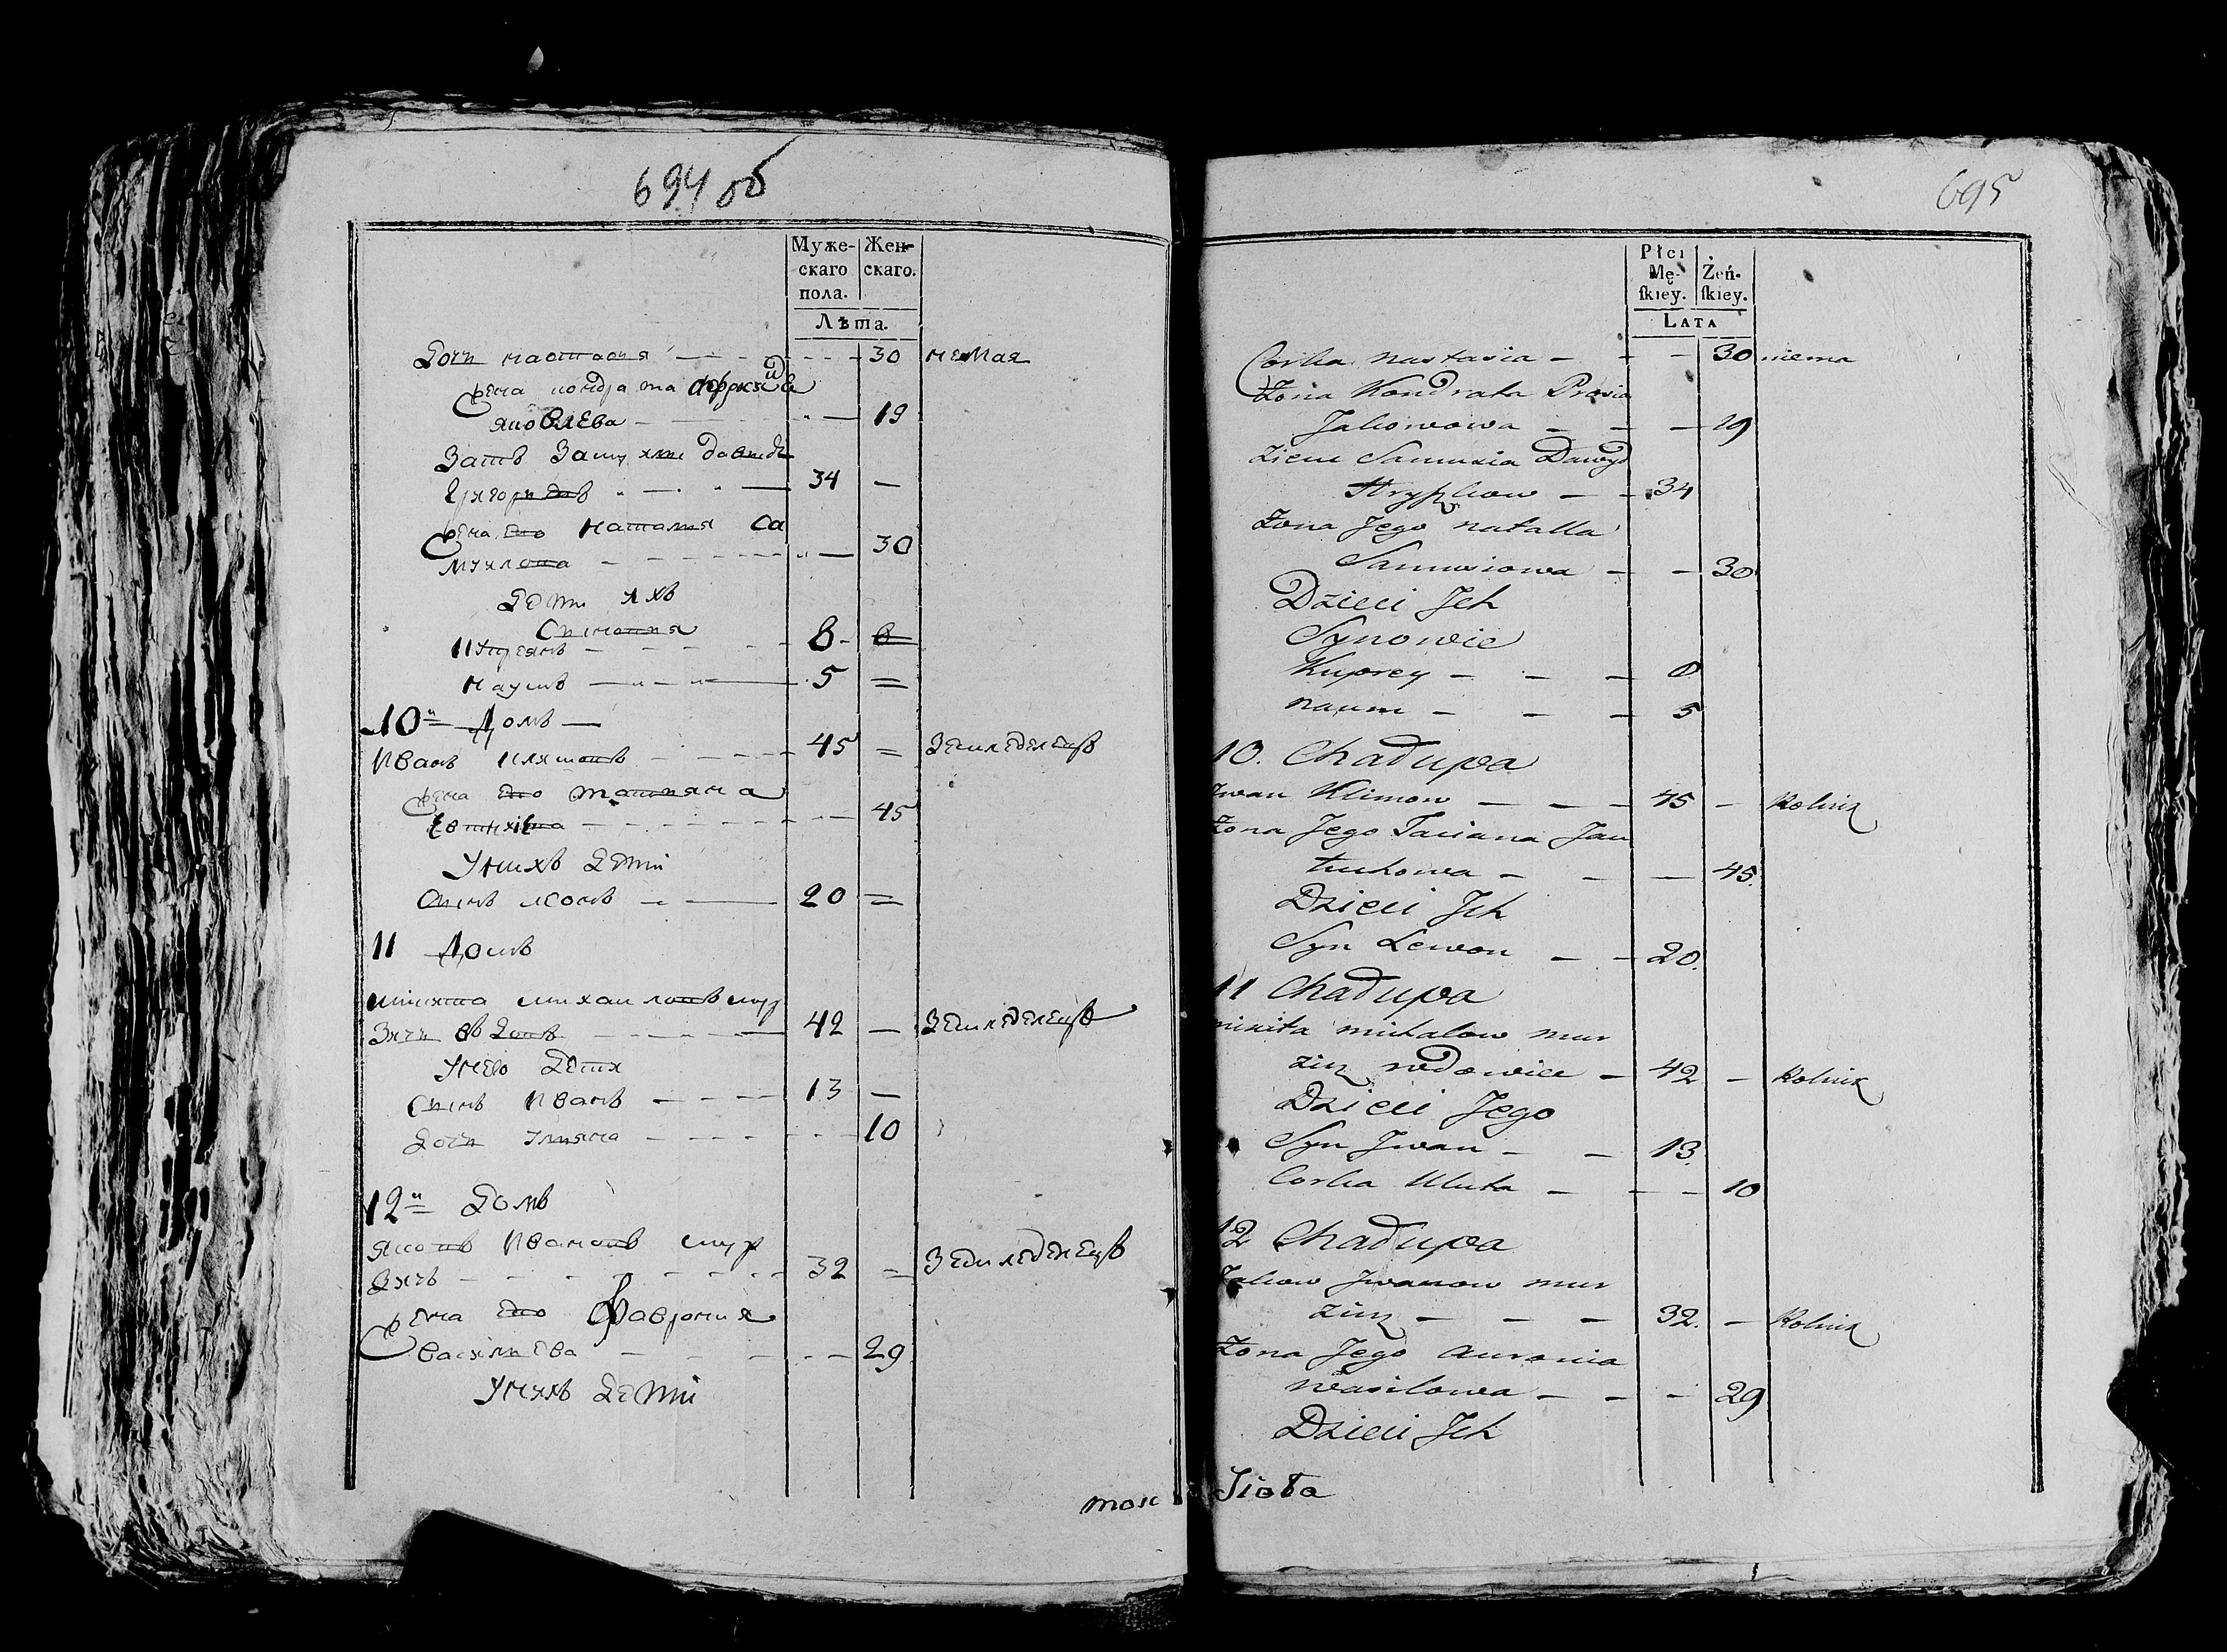 694 об
Муже-
скаго
пола.
Жен-
скаго.
Лѣта.
Дочь настасия — 30 немая
жена кондрата
яковлева — 19
Зать Давидъ
34 —
жена его наталия Са
муилова — 30
Дети ихъ
Сыновия
8
наумъ — 5 =
10й Домъ —
Иванъ климовъ — 45 = Земледелецъ
жена его татияна
45
Унихъ Дети
Сынъ леонъ — 20 =
11 Домъ
никита михаиловъ мур
зичь вдовъ — 42 — Земледелецъ
Унево Дети
Сынъ Иванъ — 13 —
Дочь улияна — 10
12й Домъ
яковъ Ивановъ мур
зичъ — 32 = Земледелецъ
жена его Фаврония
василиева — 29
Унихъ Дети
695
Płci
Mę-
ſkiey.
Żeń-
ſkiey.
LATA
Corka nastasia — 30 niema
Żona Kondrata Prosia
Jakowowa — 19
Zieńc Samusia Dawyd
34
Żona Jego natalla
Samusiowa — 30
Dzieci Ich
Synowie
Kuprey — 8
naum — 5
10. Chałupa
Iwan Klimow — 45 — Rolnik
Żona Jego Taciana Jau
tuchowa — 45.
Dzieci Ich
Syn Lewon — 20.
11 Chałupa
nikita michalow mur
zicz wdowiec — 42 — Rolnik
Dzieci Jego
Syn Iwan — 13.
Corka Uluta — 10
12 Chałupa
Jakow Iwanow mur
zicz — 32. — Rolnik
Żona Jego aurania
wasilowa — 29
Dzieci Ich